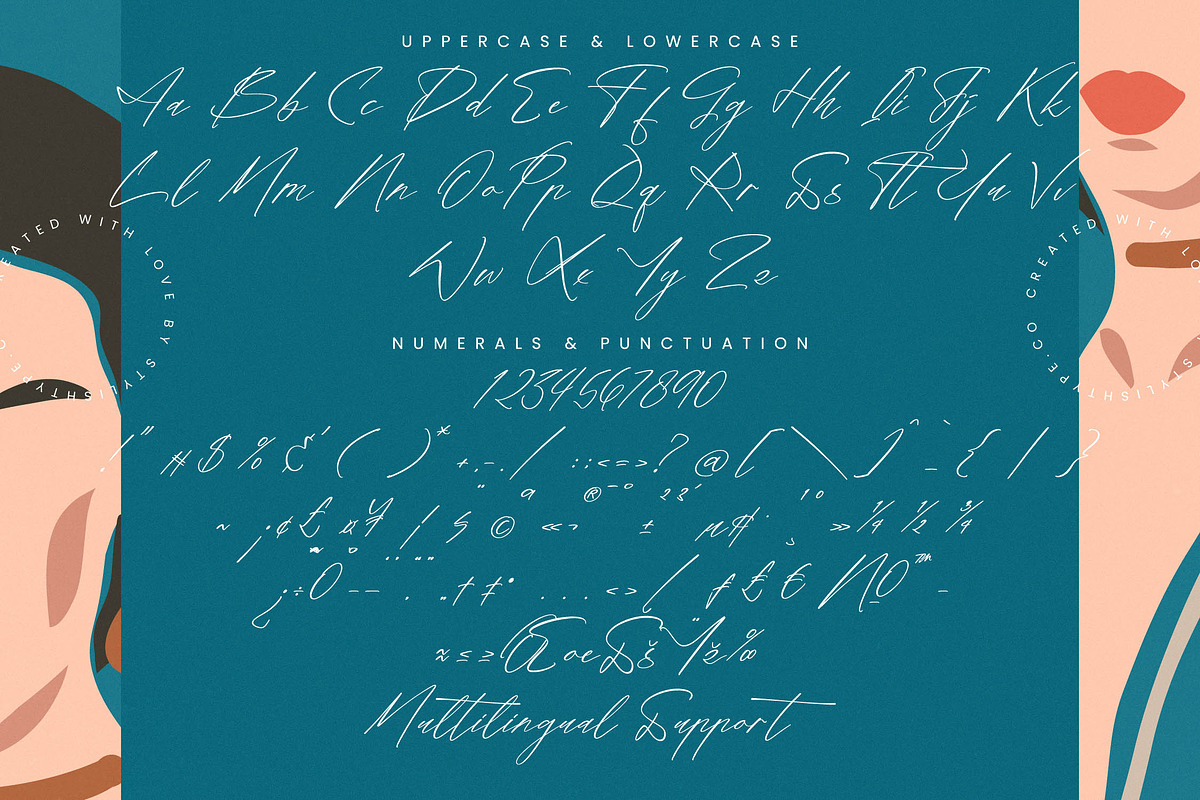 UPPERCASE & LOWERCASE
Aa Bb Cc Dd Ee Ff Gg Hh Ii Jj Kk
Ll Mm Nn Oo Pp Qq Rr Ss Tt Uu Vv
Ww Xx Yy Zz
NUMERALS & PUNCTUATION
1234567890
!"#$%&'()*+,-./:;<=>?@[\]^_`{|}
~ ¡¢£¤¥¦§¨©ª«¬®¯°±²³´µ¶·¸¹º»¼½¾
¿÷Ø–—‚„†‡•…‹›⁄ƒ£€№™−
≈≤≥ŒœŠšŸž‰
Multilingual Support
CREATED WITH LOVE BY STYLISHTYPE.CO
CREATED WITH LO
STYLISHTYPE.CO